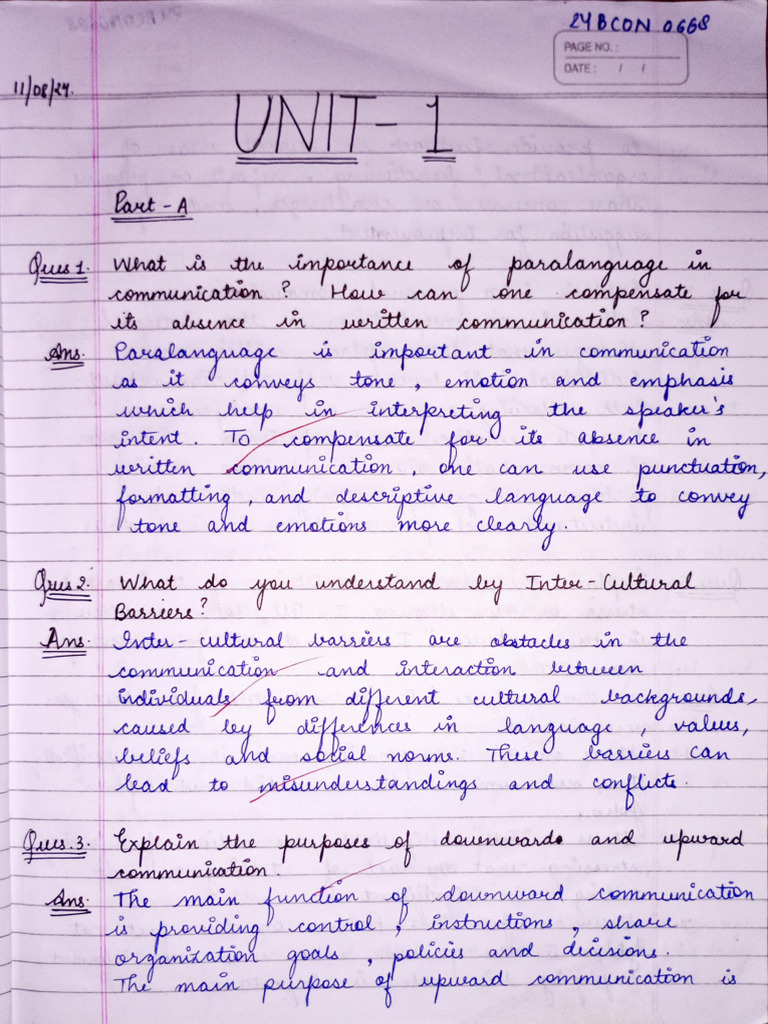 24BCON 0668
PAGE NO. :
DATE : / /
11/08/24.
UNIT-1
Part - A
Ques 1. What is the importance of paralanguage in
communication? How can one compensate for
its absence in written communication?
Ans. Paralanguage is important in communication
as it conveys tone, emotion and emphasis
which help in interpreting the speaker's
intent. To compensate for its absence in
written communication, one can use punctuation,
formatting, and descriptive language to convey
tone and emotions more clearly.
Ques 2. What do you understand by Inter-Cultural
Barriers?
Ans. Inter-cultural barriers are obstacles in the
communication and interaction between
individuals from different cultural backgrounds,
caused by differences in language, values,
beliefs and social norms. These barriers can
lead to misunderstandings and conflicts.
Ques. 3. Explain the purposes of downward and upward
communication.
Ans. The main function of downward communication
is providing control, instructions, share
organization goals, policies and decisions.
The main purpose of upward communication is